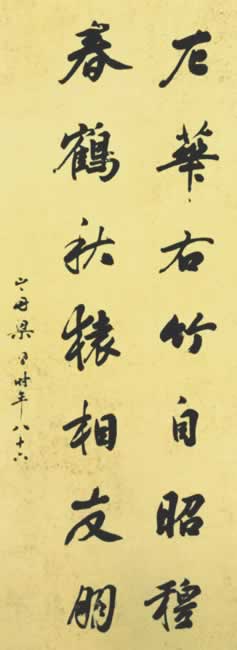 左華右竹自昭穆
春鶴秋猿相友朋
山舟梁同時年八十六